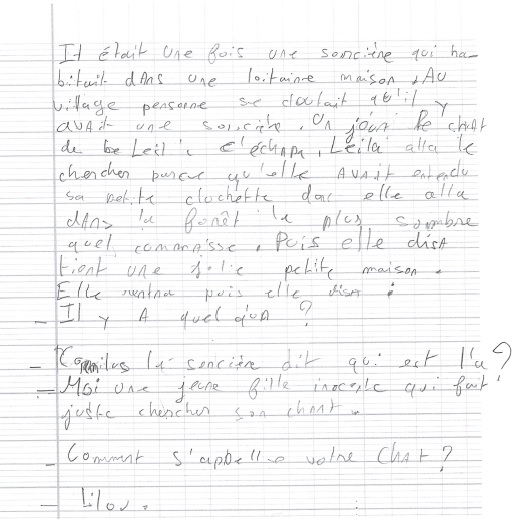 Il était une fois une sorcière qui ha-
bitait dAns une loitaine maison. AU
village personne se doutait qu'il y
avait une sorcière. Un jour le chat
de Leila c'échapa, Leila alla le
chercher parce qu'elle AVAit entendu
sa petite clochette donc elle alla
dAns la forêt la plus sombre
quel connaisse. Puis elle disA
tient une jolie petite maison.
Elle rentra puis elle disA :
- Il y A quel qUn ?
- la sorcière dit qui est l'a ?
- Moi une jeune fille inocente qui fait
juste chercher son chat.
- Comment s'appelle votre ChAt ?
- Lilou.